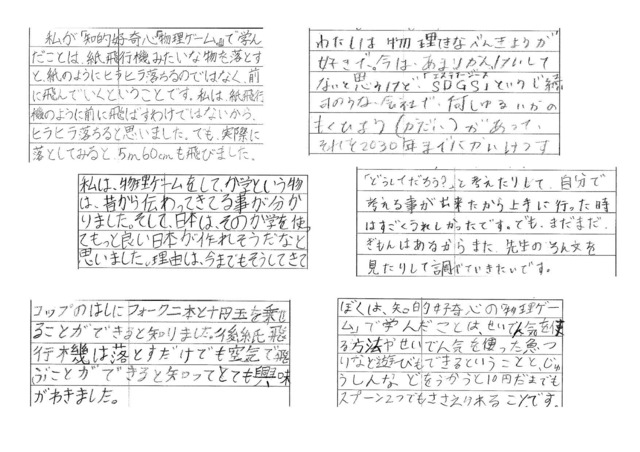 私が『知的好奇心『物理ゲーム』』で学ん
だことは、紙飛行機みたいな物を落とす
と、紙のようにヒラヒラ落ちるのではなく、前
に飛んでいくということです。私は、紙飛行
機のように前に飛ばすわけではないから、
ヒラヒラ落ちると思いました。でも、実際に
落としてみると、5m60cmも飛びました。
わたしは物理てきなべんきょうが
好きで、今は、あまりかんけいして
ないと思うけど、「SDGS」という
もくひょう(かだい)があって、
それを2030年までにかいけつす
私は、物理ゲームをして、か学という物
は、昔から伝わってきてる事が分か
りました。そして、日本は、そのか学を使っ
てもっと良い日本が作れそうだなと
思いました。理由は、今までもそうしてきて
「どうしてだろう?」と考えたりして、自分で
考える事が出来たから上手に行った時
はすごくうれしかったです。でも、まだまだ
ぎもんはあるからまた、先生のろん文を
見たりして調べていきたいです。
コップのはしにフォーク二本と十円玉を乗せ
ることができると知りました。後紙飛
行機は落とすだけでも空気で飛
ぶことができると知ってとても興味
がわきました。
ぼくは、知的好奇心の「物理ゲー
ム」で学んだことは、せいでん気を使
る方法やせいでん気を使った魚つ
りなど遊びもできるということと、じゅ
うしんなどをつかうと10円だまでも
スプーン2つでもささえられることです。